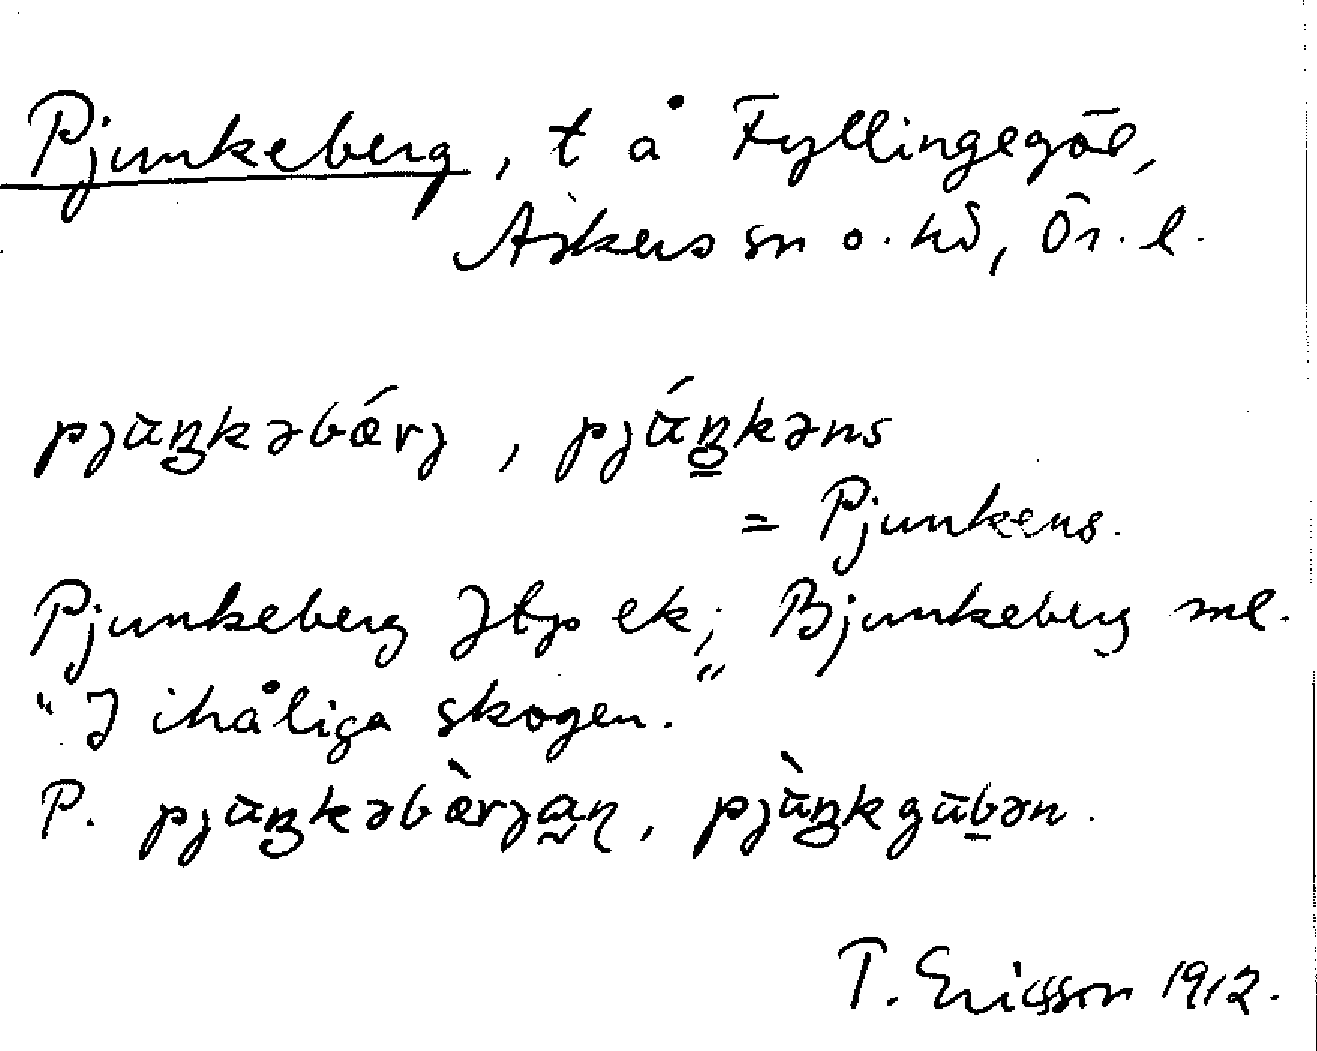 Pjunkeberg, t å Fyllingegöl,
Askers sn o. hd, Ör. l.
pjūŋkəbǽrj, pjū́ŋkəns
= Pjunkens.
Pjunkeberg Jtp ek; Bjunkeberg ml.
"I ihåliga skogen."
P. pjūŋkəbæ̀rjaɳ, pjū̀ŋkgūbən.
T. Ericsson 1912.